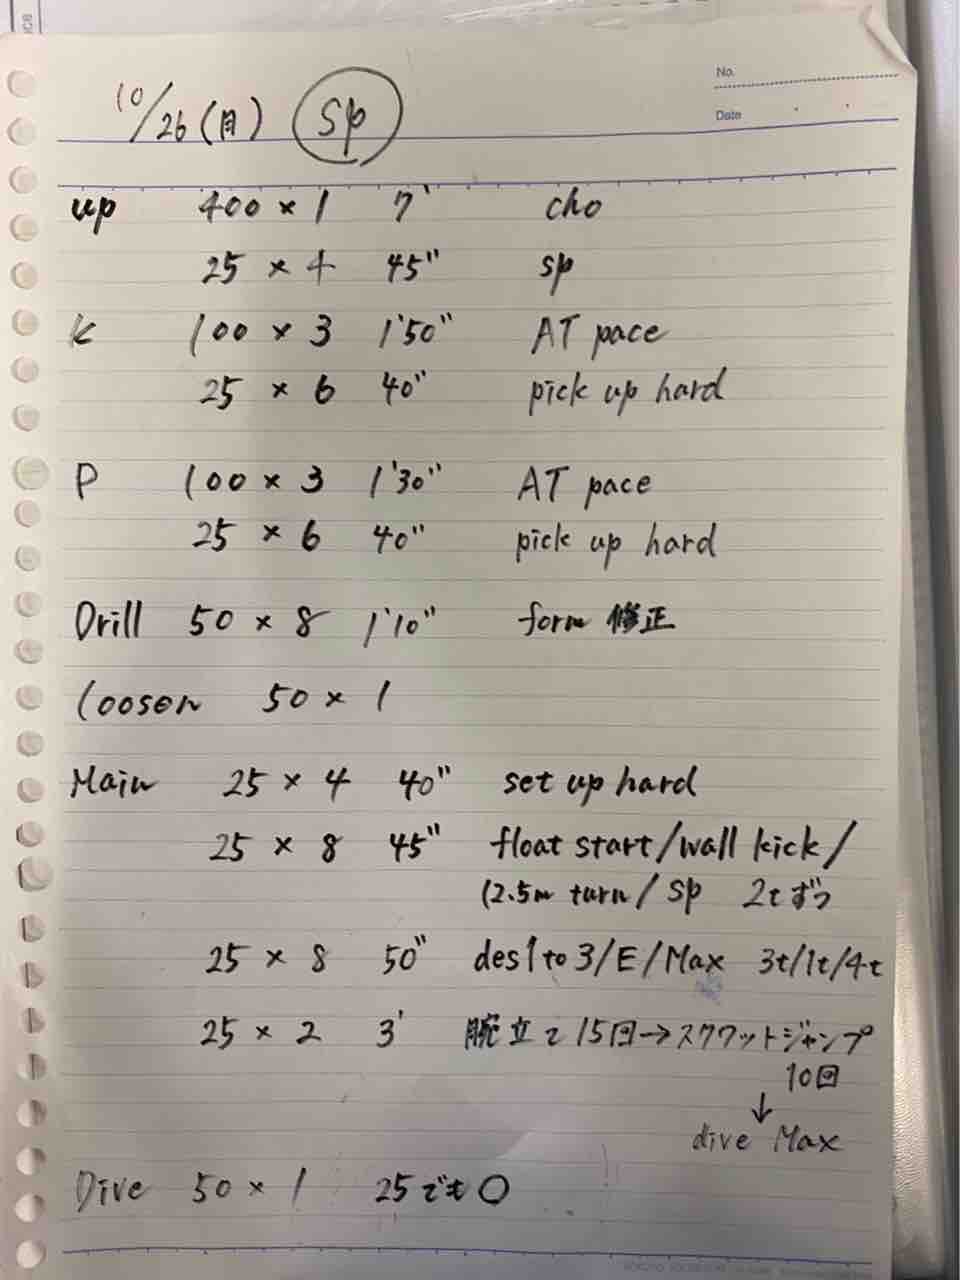 No.
Date
10/26(月) sp
up 400 × 1 7' cho
25 × 4 45" sp
k 100 × 3 1'50" AT pace
25 × 6 40" pick up hard
P 100 × 3 1'30" AT pace
25 × 6 40" pick up hard
Drill 50 × 8 1'10" form 修正
loosen 50 × 1
Main 25 × 4 40" set up hard
25 × 8 45" float start/wall kick/
12.5m turn/sp 2tずつ
25 × 8 50" des1to3/E/Max 3t/1t/4t
25 × 2 3' 腕立て15回→スクワットジャンプ
10回
↓
dive Max
Dive 50 × 1 25でも○